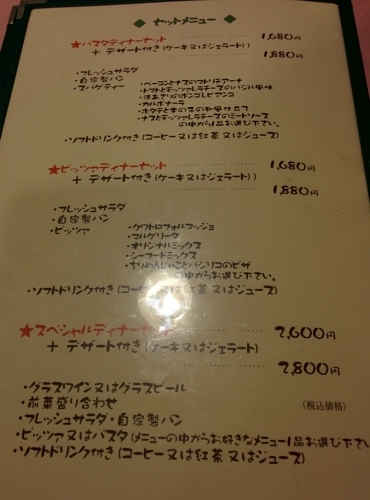 ◆ セットメニュー ◆
★パスタディナーセット 1,680円
+ デザート付き(ケーキ又はジェラート) 1,880円
・フレッシュサラダ
・自家製パン
・スパゲティー
・ベーコンとナスのアマトリチアーナ
・トマトとモッツァレラチーズのバジル風味
・浅あさりのボンゴレビアンコ
・カルボナーラ
・ホタテときのこの和風仕立て
・ナスとモッツァレラチーズのミートソース
の中から1品お選び下さい。
・ソフトドリンク付き(コーヒー又は紅茶又はジュース)
★ピッツァディナーセット 1,680円
+ デザート付き(ケーキ又はジェラート) 1,880円
・フレッシュサラダ
・自家製パン
・ピッツァ
・クワトロフォルマッジョ
・マルゲリータ
・オリジナルミックス
・シーフードミックス
・ちりめんじゃことバジリコのピザ
の中からお選び下さい。
・ソフトドリンク付き(コーヒー又は紅茶又はジュース)
★スペシャルディナーセット 2,600円
+ デザート付き(ケーキ又はジェラート) 2,800円
・グラスワイン又はグラスビール
・前菜盛り合わせ (税込価格)
・フレッシュサラダ・自家製パン
・ピッツァ又はパスタ(メニューの中からお好きなメニュー1品お選び下さい
・ソフトドリンク付き(コーヒー又は紅茶又はジュース)